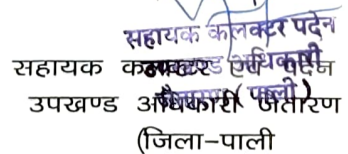 सहायक कलक्टर पदेन
उपखण्ड अधिकारी
जैतारण (पाली)
सहायक कलक्टर एवं पदेन
उपखण्ड अधिकारी जैतारण
(जिला-पाली